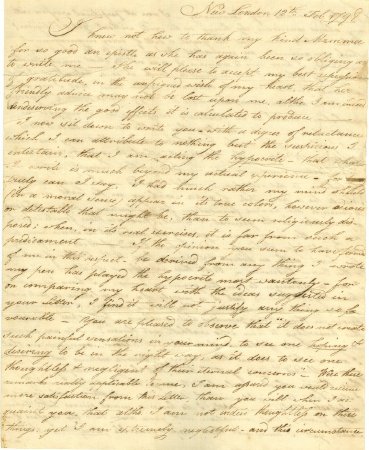 New London 12th Feb. 1798
I know not how to thank my kind Mamma
for so good an epistle as she has again been so obliging as
to write me. She will please to accept my best expressions
of gratitude, in the unfeigned wish of my heart that her
friendly advice may not be lost upon me, altho I am even
undeserving the good effects it is calculated to produce.
I now sit down to write you with a degree of reluctance
which I can attribute to nothing but the suspicions I
entertain, that I am acting the hypocrite - that what
I write is much beyond my actual experience -
truly can I say I had much rather my mind should
(in a moral sense) appear in its true colors, however
or detestable that might be, than to seem religiously dis
posed; when, in its real exercises, it is far from such a
predicament. If the opinion you seem to have formed
of me in this respect be derived from any thing I wrote
my pen has played the hypocrite most wantonly - for
on comparing my heart with the ideas suggested in
your letter, I find it will not justify any thing so fa
vourable - You are pleased to observe that it does not create
such painful sensations in your mind, to see one hoping &
desiring to be in the right way, as it does to see one
thoughtless & negligent of their eternal concerns - Were these
remarks really applicable to me, I am afraid you would receive
more satisfaction from this letter than you will when I
you, that altho I am not wholly thoughtless on these
things, yet I am extremely neglectful - and this circumstance